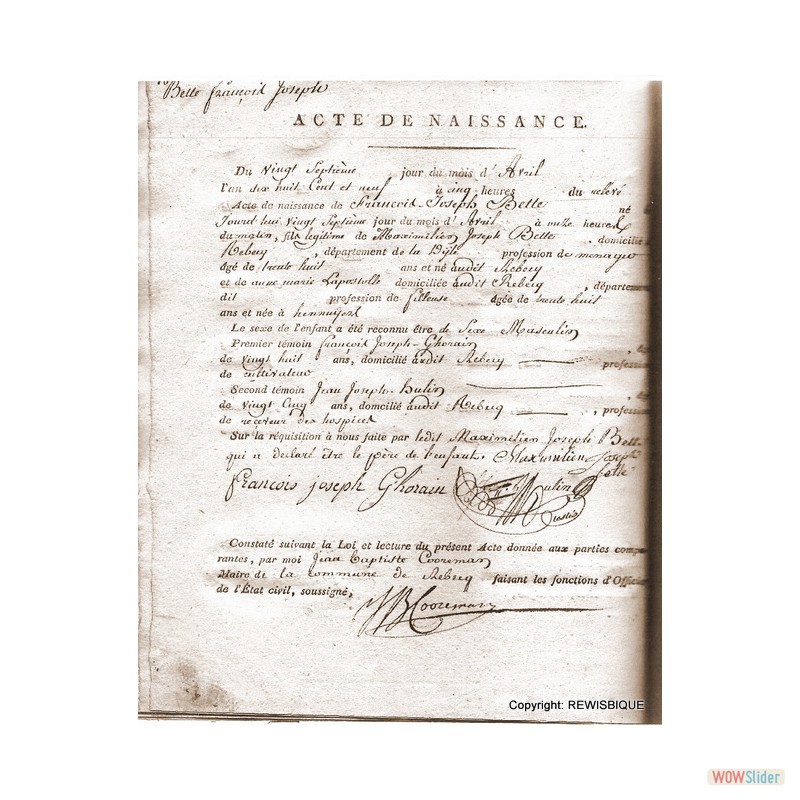 Bette françois Joseph
ACTE DE NAISSANCE.
Du Vingt Septième jour du mois d' Avril
l'an dix huit Cent et neuf à cinq heures du relevé
Acte de naissance de François Joseph Bette né
Jourd hui vingt Septième jour du mois d' Avril à onze heures
du matin, fils legitime de Maximilien Joseph Bette, domicilié
Rebecq, département de la Dÿle profession de menager
âgé de trente huit ans et né audit Rebecq
et de anne marie Lapostolle domiciliée audit Rebecq, départem
dit profession de fileuse âgée de trente huit
ans et née à hennuijeres
Le sexe de l'enfant a été reconnu être de Sexe Masculin
Premier témoin françois Joseph Ghorain
de vingt huit ans, domicilié audit Rebecq, profess
de cultivateur
Second témoin Jean Joseph hulin
de vingt Cinq ans, domicilié audit Rebecq, profess
de receveur des hospices
Sur la réquisition à nous faite par ledit Maximilien Joseph Bette
qui a déclaré être le père de l'enfant. Maximilien Joseph
bette
françois joseph Ghorain hulin
Constaté suivant la Loi et lecture du présent Acte donnée aux parties compa
rantes, par moi Jean Baptiste Cooreman
Maire de la commune de Rebecq faisant les fonctions d'Officier
de l'État civil, soussigné,
JB Cooreman
Copyright: REWISBIQUE
WOWSlider